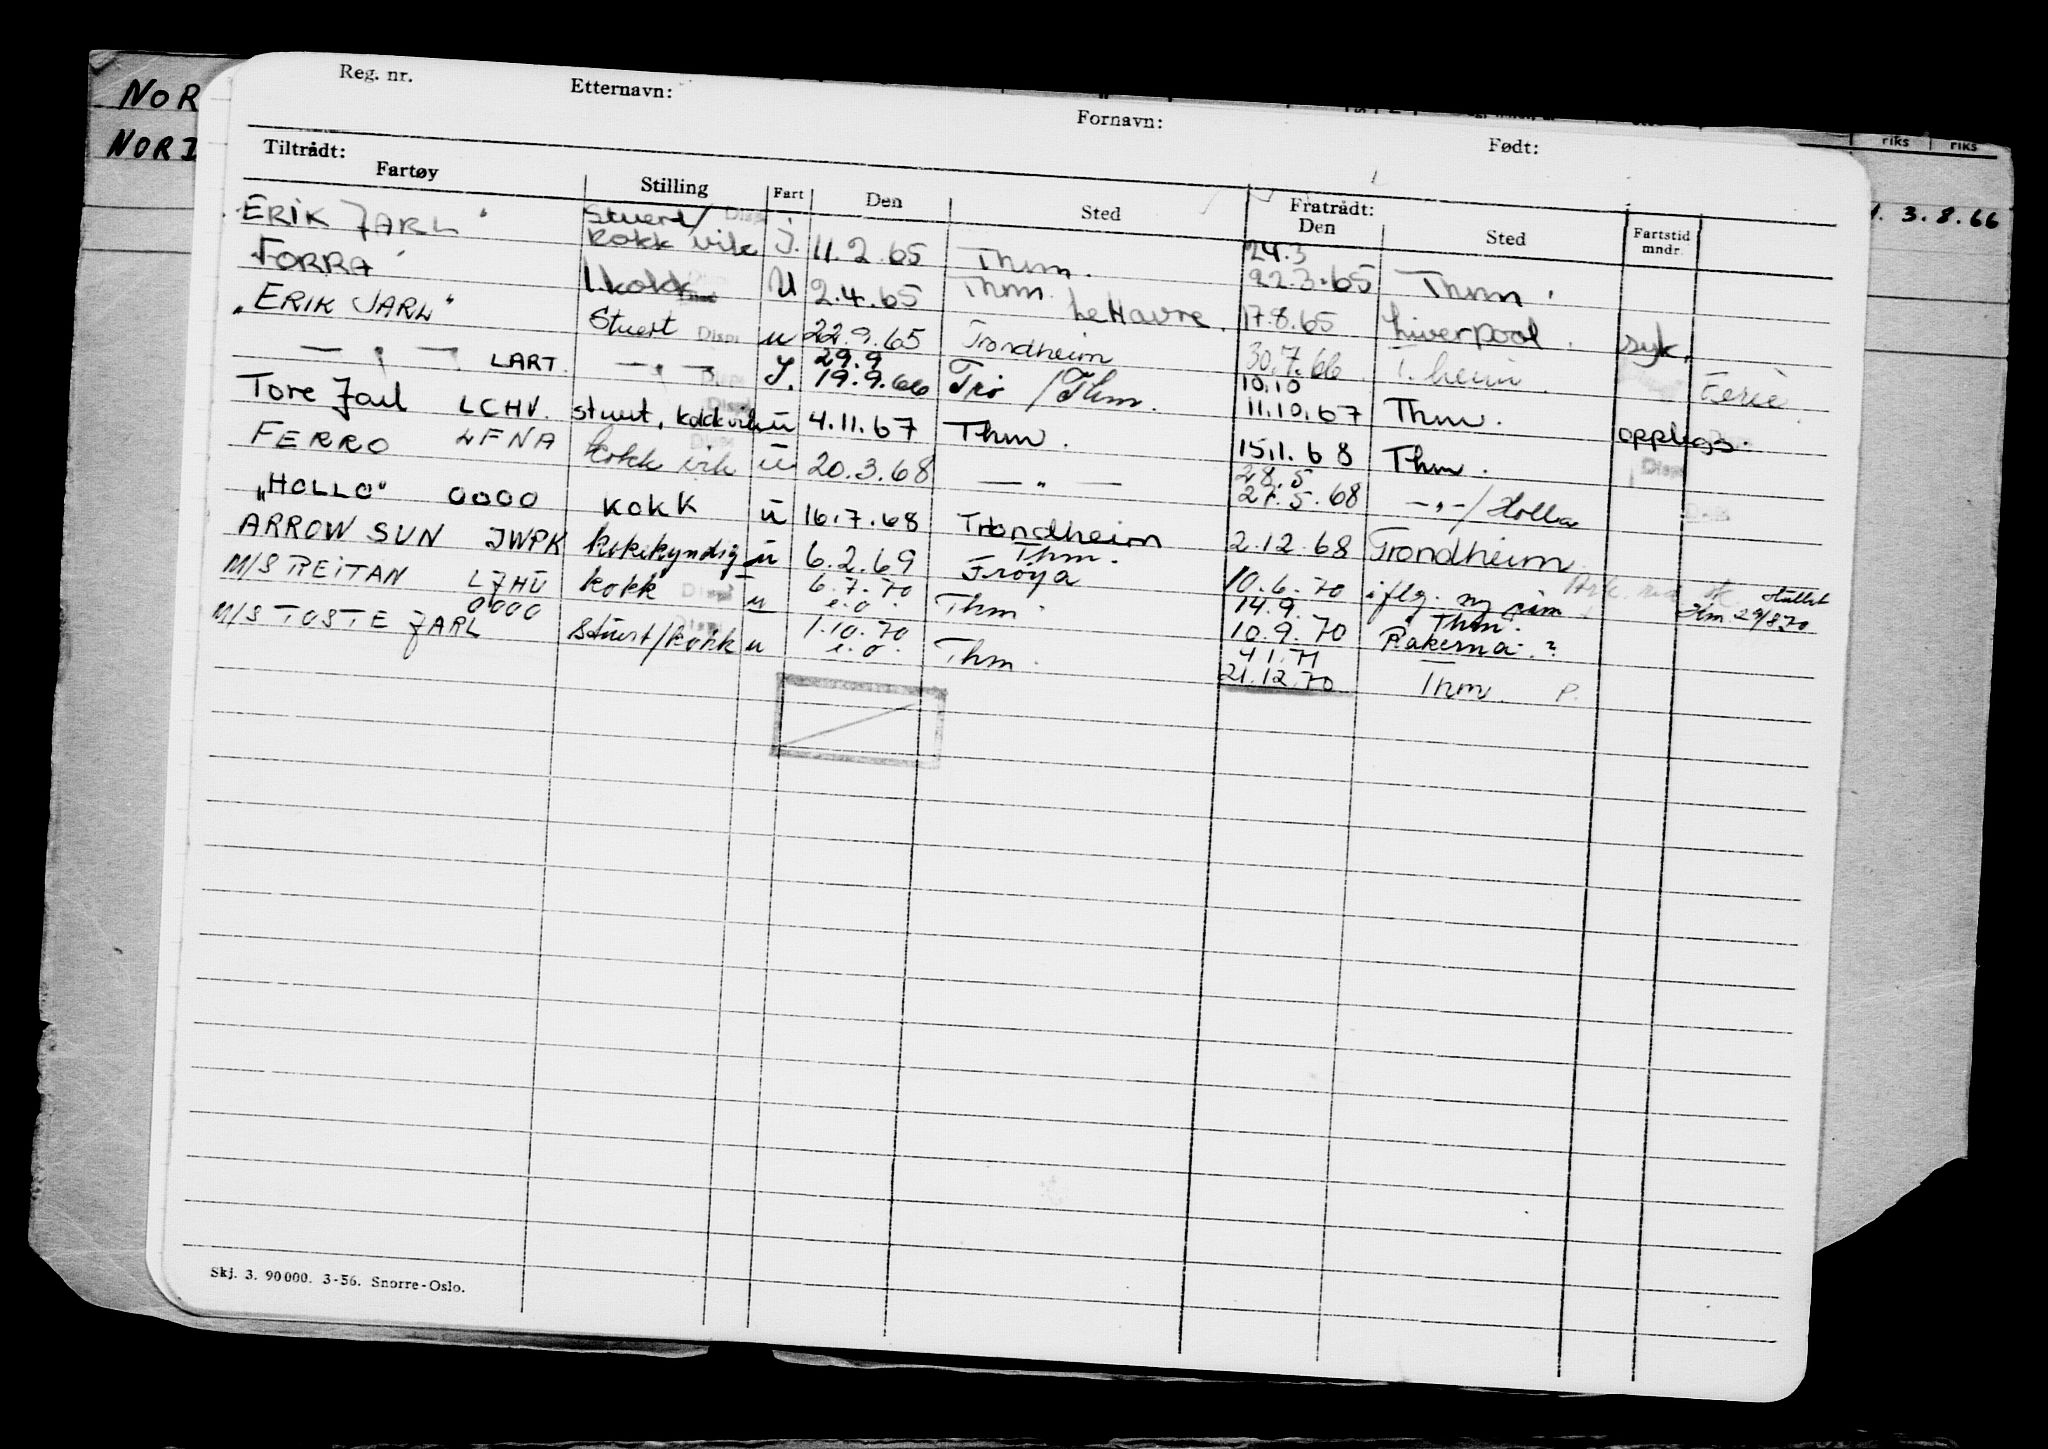 NOR
NORI
riks riks
1. 3.8.66
Reg. nr. Etternavn: Fornavn: Født:
Tiltrådt: Fratrådt:
Fartøy Stilling Fart Den Sted Den Sted Fartstid mndr.
ERIK JARL" Stuert/ kokk vik J. 11.2.65 Thm. 24.3 22.3.65 Thm.
TORRA kokk U 2.4.65 Thm. Le Havre. 17.8.65 Liverpool. syk.
"ERIK JARL" Stuert u 22.9.65 Trondheim 30.7.66 T.heim. Ferie.
— " — LART. — " — J. 29.9 19.9.66 Tro / Thm. 10.10 11.10.67 Thm. opplegs.
Tore Jarl LCHV. stuert, kokk vik u 4.11.67 Thm. 15.1.68 Thm.
FERRO LFNA kokk vik u 20.3.68 — " — 28.5 27.5.68 — " — / Holla
"HOLLO" OOOO KOKK u 16.7.68 Trondheim 2.12.68 Trondheim
ARROW SUN JWPK kokkkyndig u 6.2.69 Thm. Frøya 10.6.70 iflg. ny rim
M/S REITAN LJHU OOOO kokk u 6.7.70 e.o. Thm. 14.9. 10.9.70 Thm. Råkerna.?
M/S TOSTE JARL stuert/kokk u 1.10.70 e.o. Thm. 4.1.71 21.12.70 Thm. P.
Skj. 3. 90000. 3-56. Snorre-Oslo.